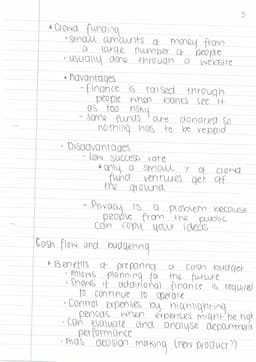 5
* Crowd funding
· small amounts of money from
a large number of people
· usually done through a website
• Advantages
- Finance is raised through
people when banks see it
as too risky
- some funds are donated so
nothing has to be repaid
· Disadvantages
- Low success rate
* only a small % of crowd
fund ventures get off
the ground
- Privacy is a problem because
people from the public
can copy your ideas
Cash flow and budgeting
* Benefits of preparing a cash budget
· Allows planning for the future
· Shows if additional finance is required
to continue to operate
· Control expenses by highlighting
periods when expenses might be high
· Can evaluate and analyse department
performance
· Aids decision making (new product?)